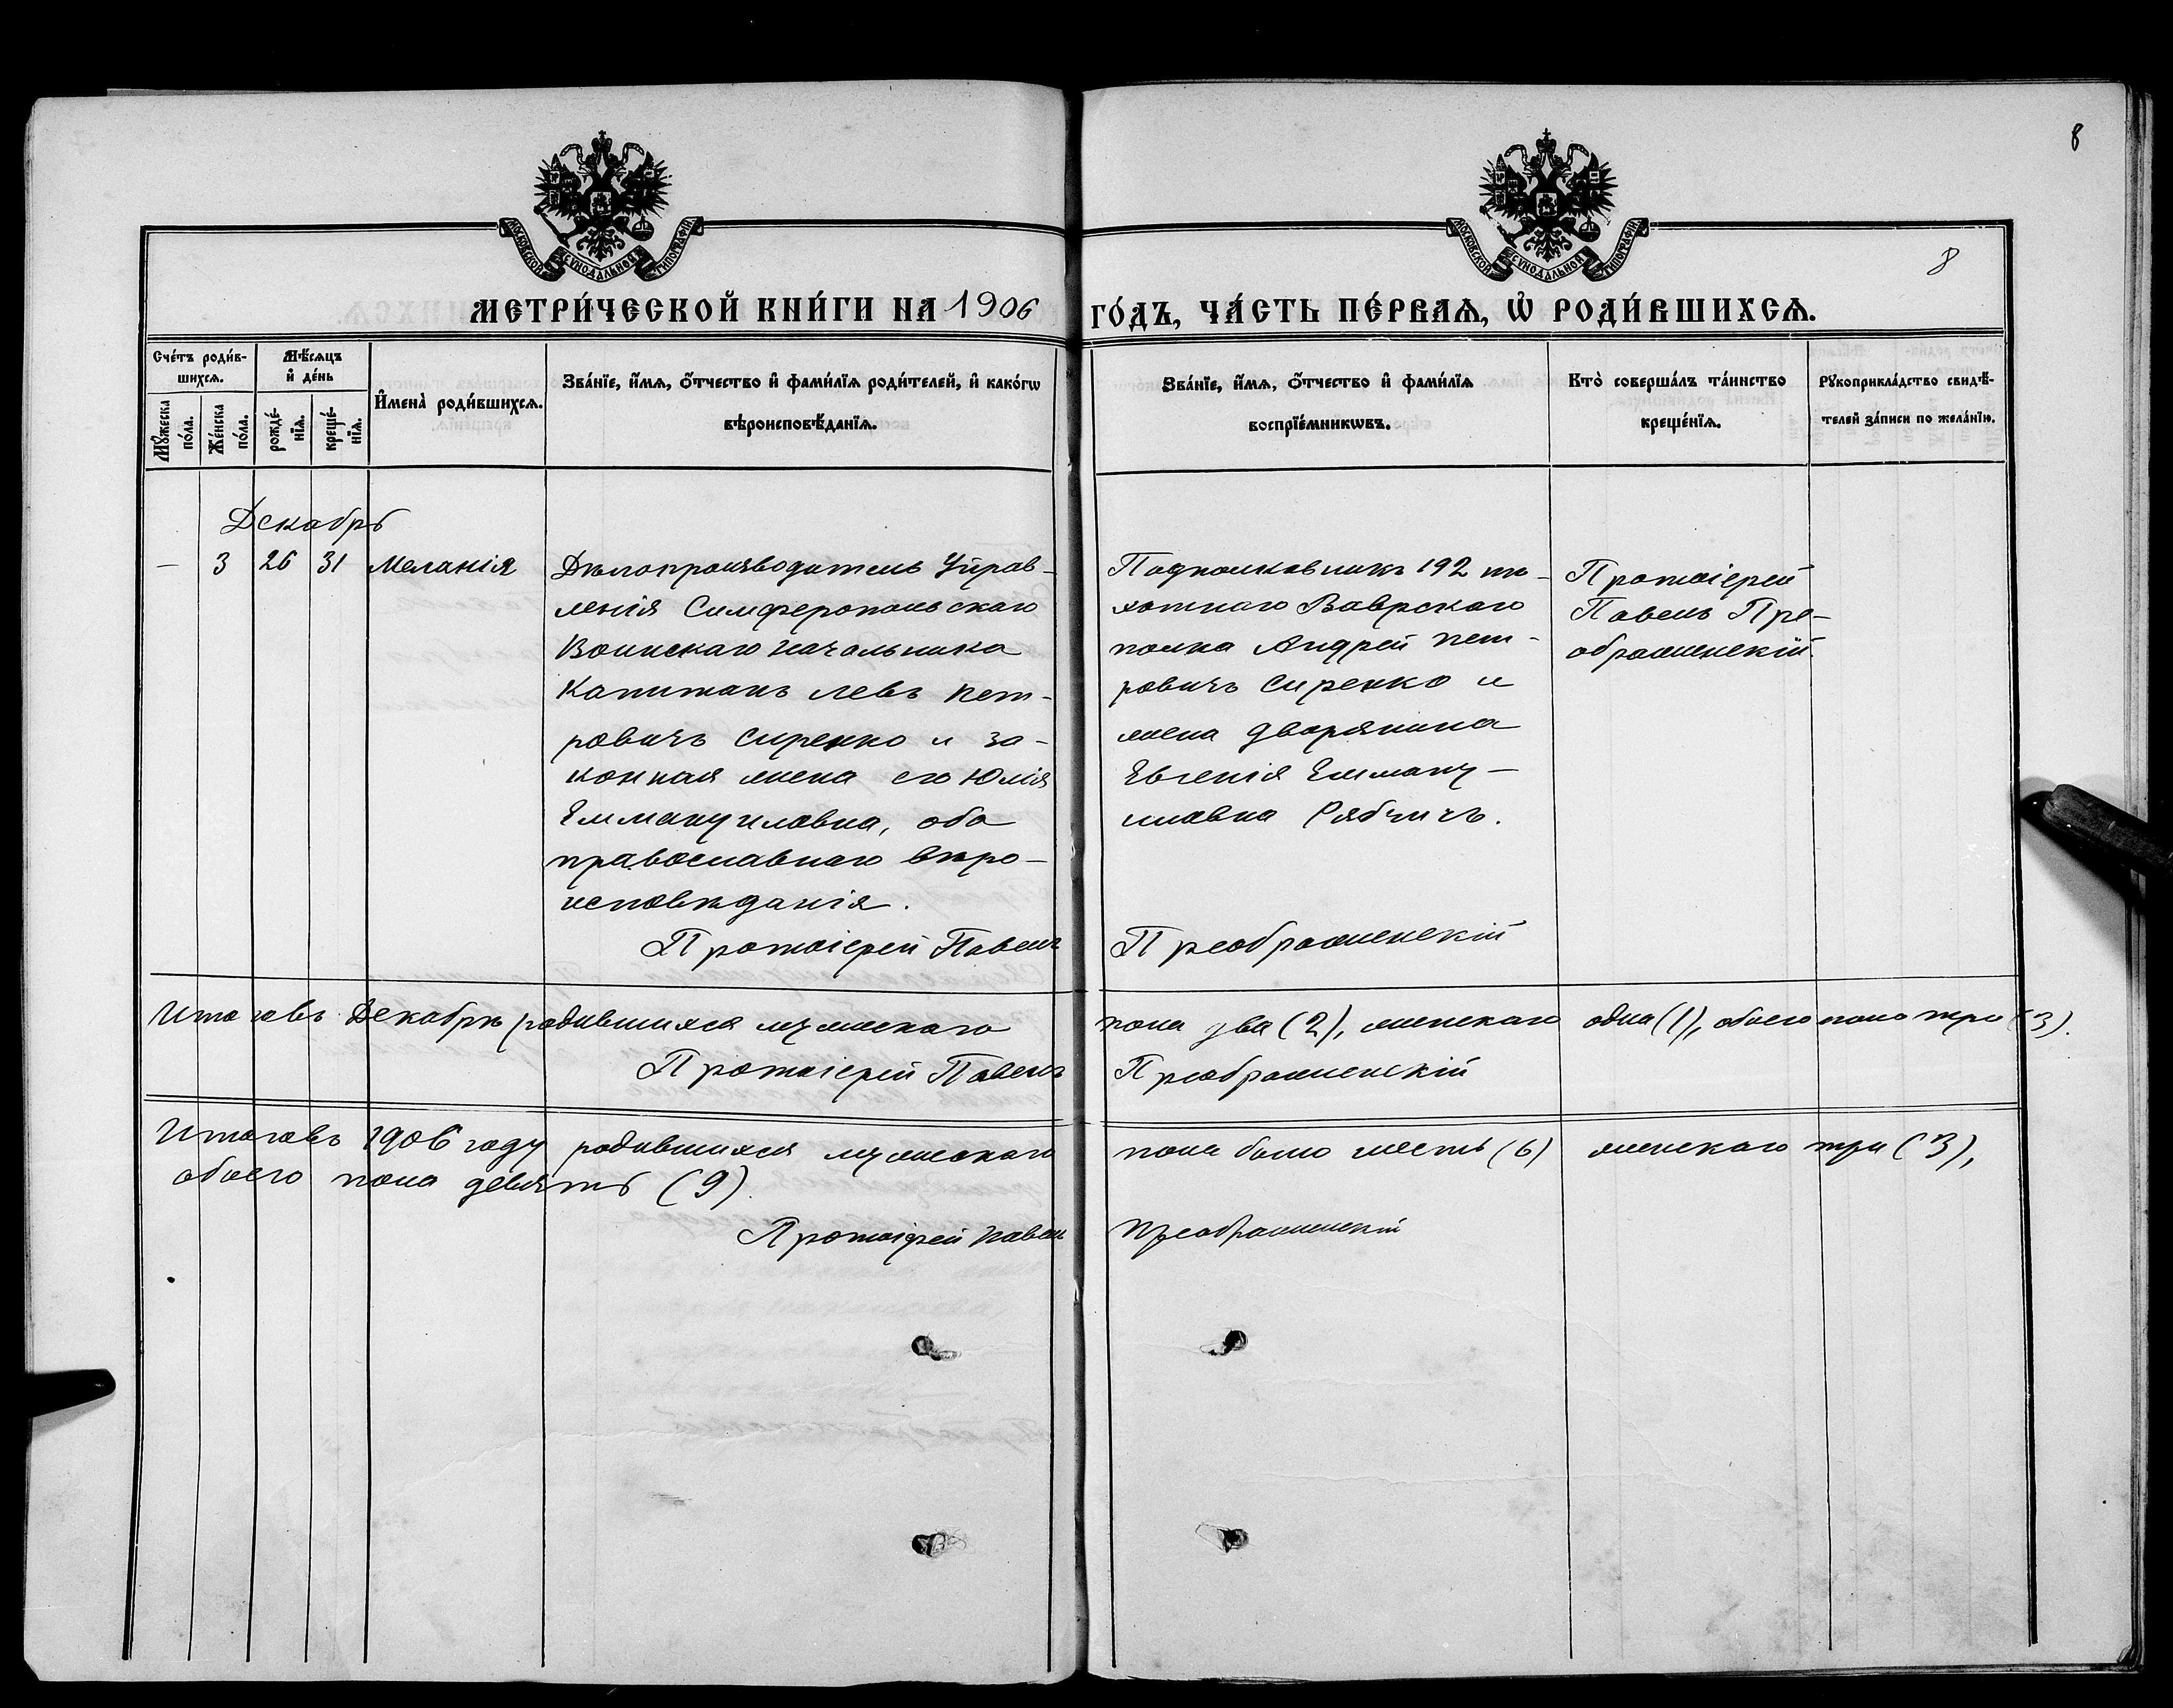 8
МОСКОВСКОЙ СѴНОДАЛЬНОЙ ТИПОГРАФІИ
МОСКОВСКОЙ СѴНОДАЛЬНОЙ ТИПОГРАФІИ
8
МЕТРИ́ЧЕСКОЙ КНИ́ГИ НА 1906
ГО́ДЪ, ЧА́СТЬ ПЕ́РВАѦ, Ѡ҆ РОДИ́ВШИХСѦ.
Сче́тъ роди́в-
шихсѧ.
Мѣ́сѧцъ
и҆ де́нь
Мꙋ́жеска
по́ла.
Же́нска
по́ла.
рожде́-
нїѧ.
креще́-
нїѧ.
И҆мена̀ роди́вшихсѧ.
Зва́нїе, и҆́мѧ, ѻ҆́тчество и҆ фами́лїѧ роди́телей, и҆ како́гѡ
вѣроисповѣ́данїѧ.
Зва́нїе, и҆́мѧ, ѻ҆́тчество и҆ фами́лїѧ
воспрїе́мникѡвъ.
Кто̀ соверша́лъ та́инство
креще́нїѧ.
Рꙋкоприкла́дство свидѣ́-
телей за́писи по жела́нїю.
Декабрь
— 3 26 31 Меланія
Дѣлопроизводитель Управ-
ленія Симферопольскаго
Воинскаго Начальника
Капитанъ Левъ Пет-
ровичъ Сиренко и за-
конная жена его Юлія
Еммануиловна, оба
православнаго вѣро-
исповѣданія.
Протоіерей Павелъ
Подполковникъ 192 пѣ-
хотнаго Ваврскаго
полка Андрей Пет-
ровичъ Сиренко и
жена дворянина
Евгенія Емману-
иловна Рябчичъ.
Преображенскій
Протоіерей
Павелъ Пре-
ображенскій.
Итого въ Декабрѣ родившихся мужескаго пола два (2), женскаго одна (1), обоего пола три (3).
Протоіерей Павелъ Преображенскій
Итого въ 1906 году родившихся мужескаго пола было шесть (6) женскаго три (3),
обоего пола девять (9).
Протоіерей Павелъ Преображенскій